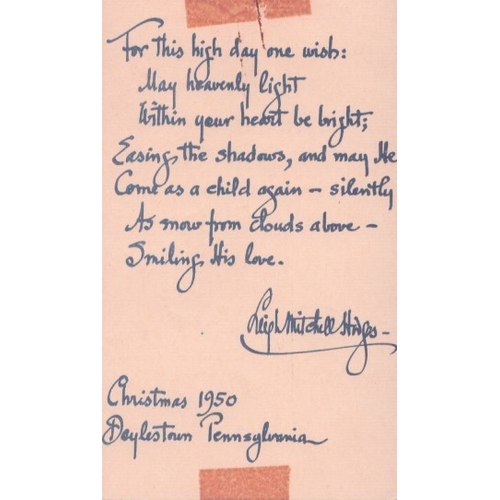 For this high day one wish:
May heavenly light
Within your heart be bright;
Easing the shadows, and may He
Come as a child again – silently
As snow from clouds above –
Smiling His love.
Leigh Mitchell Hodges –
Christmas 1950
Doylestown Pennsylvania